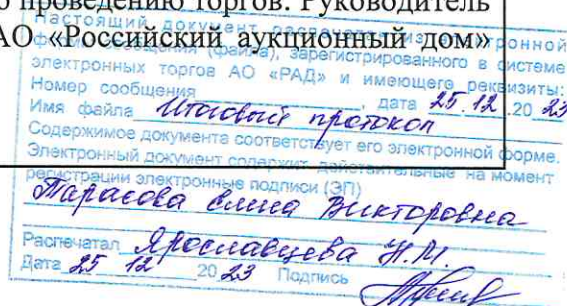 о проведению торгов. Руководитель
АО «Российский аукционный дом»
Настоящий документ распечатан из электронной
формы сообщения (файла), зарегистрированного в системе
электронных торгов АО «РАД» и имеющего реквизиты:
Номер сообщения , дата 25.12.2023
Имя файла Итоговый протокол
Содержимое документа соответствует его электронной форме.
Электронный документ содержит действительные на момент
регистрации электронные подписи (ЭП)
Тарасова Викторовна
Распечатал Ярославцева Н.М.
Дата 25 12 2023 Подпись